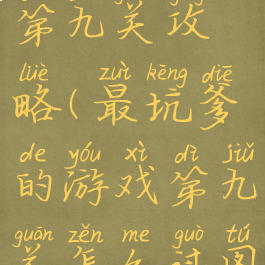 第九关攻
lüè zuì kēng diē
略(最坑爹
de yóu xì dì jiǔ
的游戏第九
guān zěn me guò tú
关怎么过图